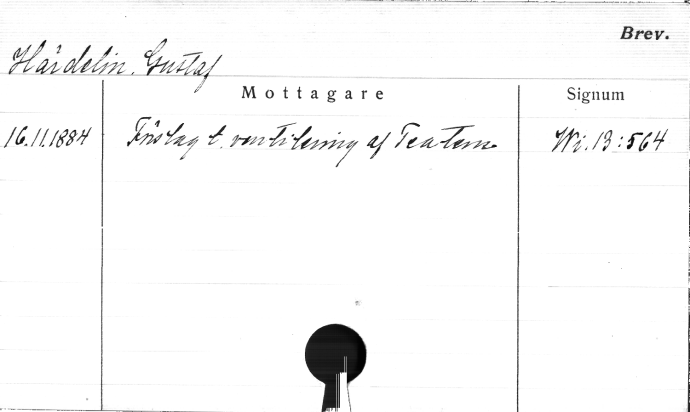 Brev.
Härdelin, Gustaf
Mottagare
Signum
16.11.1884 Förslag t. ventilering af Teatern Wi. 13:564